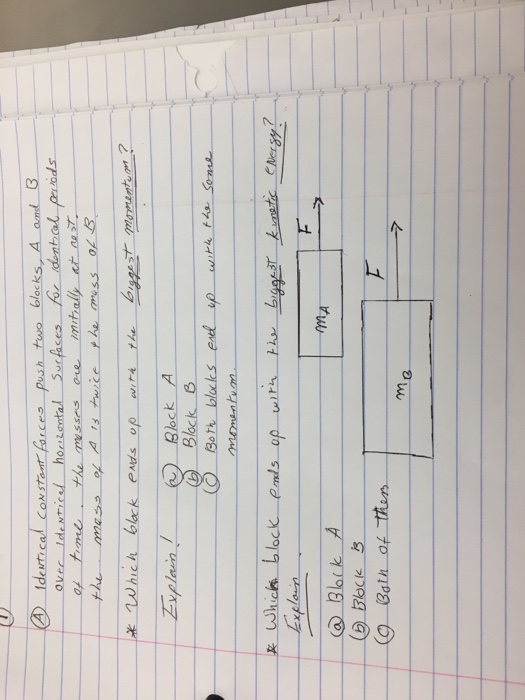 1)
(A) Identical constant forces push two blocks, A and B
over identical horizontal surfaces for identical periods
of time. the masses are initially at rest.
the mass of A is twice the mass of B
* Which block ends up with the biggest momentum?
Explain! (a) Block A
(b) Block B
(c) Both blocks end up with the same
momentum.
* Which block ends up with the biggest kinetic energy?
Explain.
(a) Block A
(b) Block B
(c) Both of them
mA F
mB F